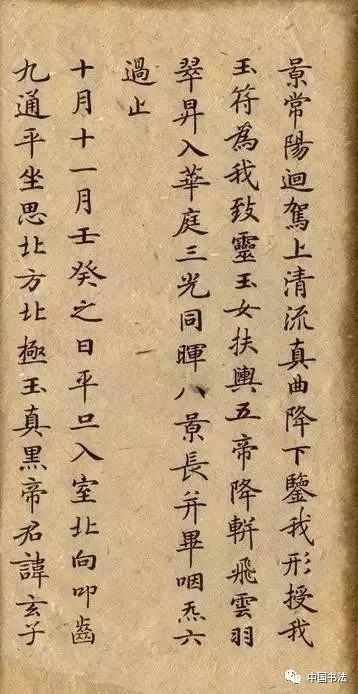 景常陽迴駕上清流真曲降下鑒我形授我
玉符為我致靈玉女扶輿五帝降軿飛雲羽
翠昇入華庭三光同暉八景長并畢咽炁六
過止
十月十一月壬癸之日平旦入室北向叩齒
九通平坐思北方北極玉真黑帝君諱玄子
中国书法